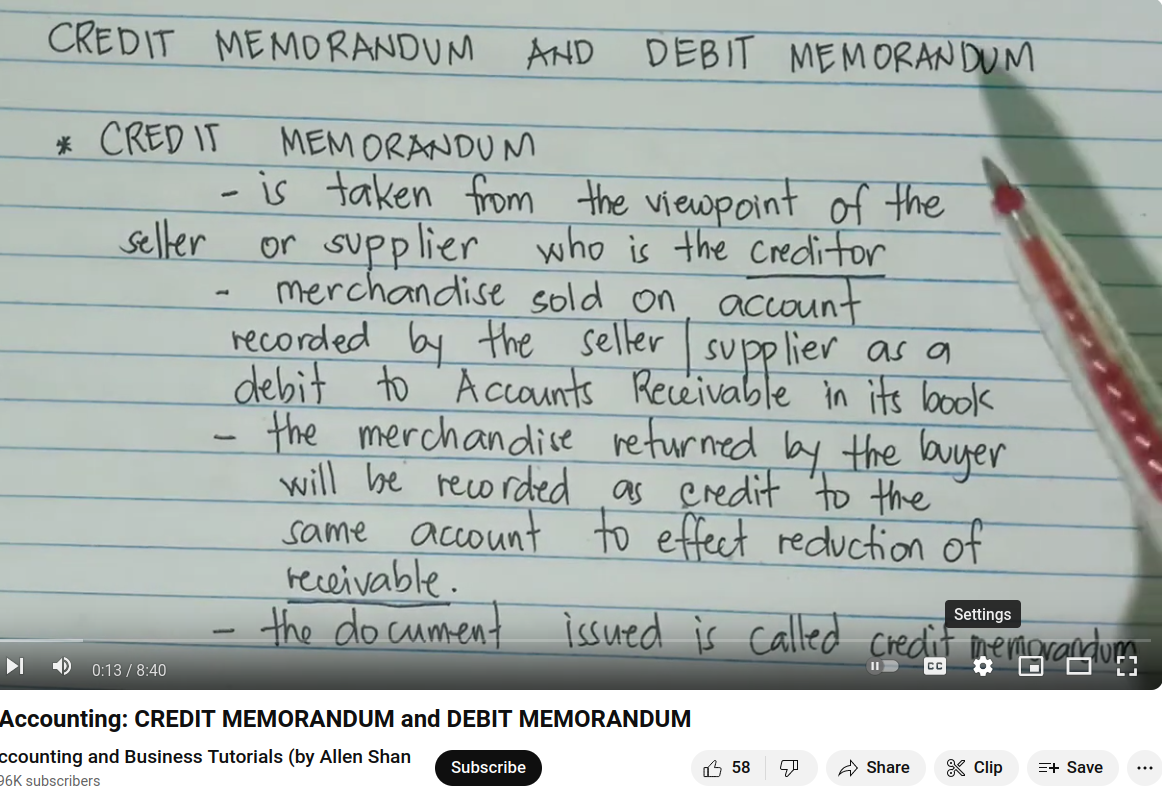 CREDIT MEMORANDUM AND DEBIT MEMORANDUM
* CREDIT MEMORANDUM
- is taken from the viewpoint of the
seller or supplier who is the creditor
- merchandise sold on account
recorded by the seller | supplier as a
debit to Accounts Receivable in its book
- the merchandise returned by the buyer
will be recorded as credit to the
same account to effect reduction of
receivable.
- the document issued is called credit memorandum
Settings
0:13 / 8:40
CC
Accounting: CREDIT MEMORANDUM and DEBIT MEMORANDUM
ccounting and Business Tutorials (by Allen Shan
96K subscribers
Subscribe
58
Share
Clip
Save